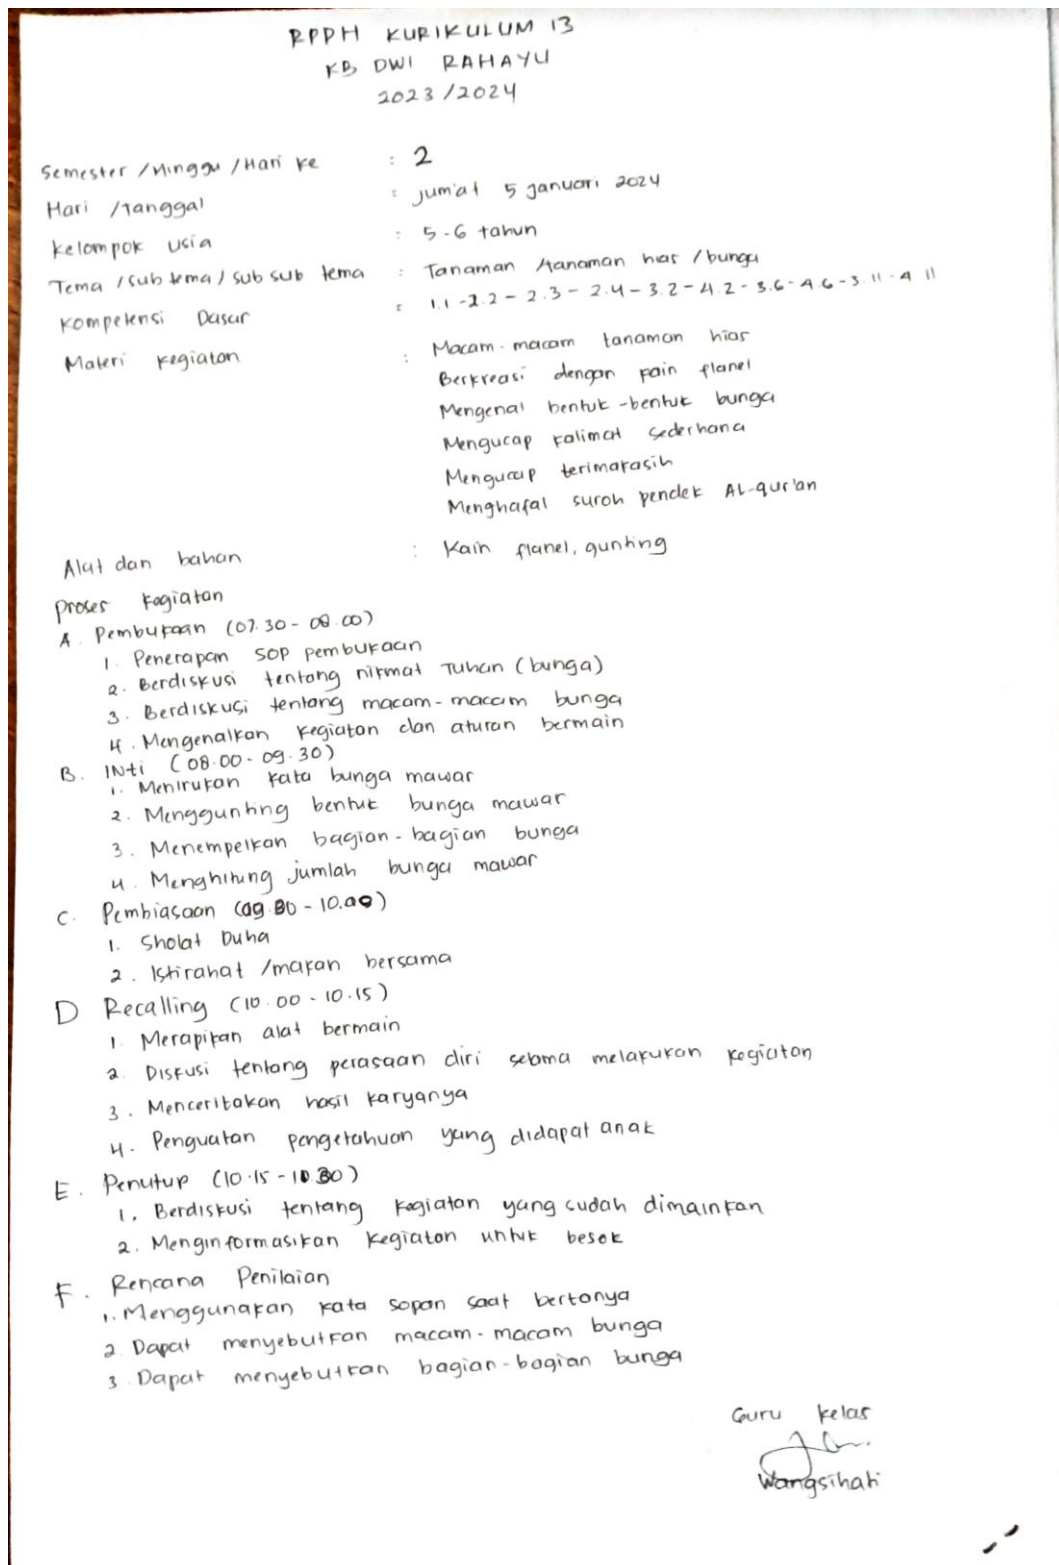 RPPH KURIKULUM 13
KB DWI RAHAYU
2023/2024
Semester /Minggu /Hari ke : 2
Hari /Tanggal : jum'at 5 januari 2024
Kelompok usia : 5-6 tahun
Tema /sub tema/ sub sub tema : Tanaman /tanaman hias /bunga
Kompetensi Dasar : 1.1 - 2.2 - 2.3 - 2.4 - 3.2 - 4.2 - 3.6 - 4.6 - 3.11 - 4.11
Materi kegiatan : Macam-macam tanaman hias
Berkreasi dengan kain flanel
Mengenal bentuk-bentuk bunga
Mengucap kalimat sederhana
Mengucap terimakasih
Menghafal suroh pendek AL-qur'an
Alat dan bahan : Kain flanel, gunting
Proses kegiatan
A. Pembukaan (07.30 - 08.00)
1. Penerapan SOP pembukaan
2. Berdiskusi tentang nikmat Tuhan (bunga)
3. Berdiskusi tentang macam-macam bunga
4. Mengenalkan kegiatan dan aturan bermain
B. INti (08.00 - 09.30)
1. Menirukan kata bunga mawar
2. Menggunting bentuk bunga mawar
3. Menempelkan bagian-bagian bunga
4. Menghitung jumlah bunga mawar
C. Pembiasaan (09.30 - 10.00)
1. Sholat Duha
2. Istirahat /makan bersama
D Recalling (10.00 - 10.15)
1. Merapikan alat bermain
2. Diskusi tentang perasaan diri selama melakukan kegiatan
3. Menceritakan hasil karyanya
4. Penguatan pengetahuan yang didapat anak
E. Penutup (10.15 - 10.30)
1. Berdiskusi tentang kegiatan yang sudah dimainkan
2. Menginformasikan kegiatan untuk besok
F. Rencana Penilaian
1. Menggunakan kata sopan saat bertanya
2. Dapat menyebutkan macam-macam bunga
3. Dapat menyebutkan bagian-bagian bunga
Guru kelas
Wangsihati